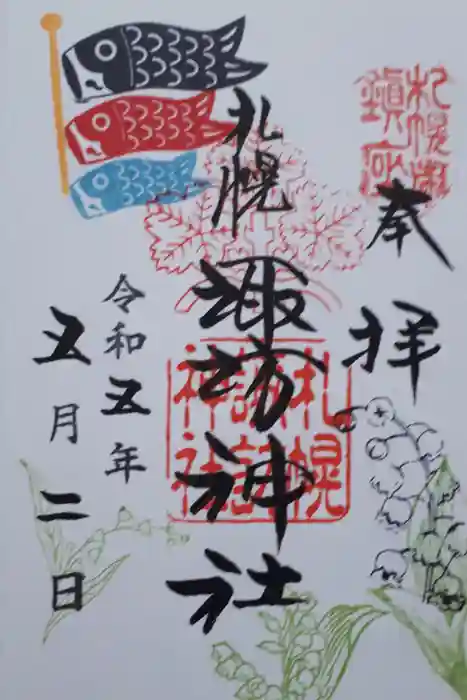 奉拝
札幌市
鎮座
札幌
諏訪神社
札幌
諏訪
神社
令和五年
五月二日